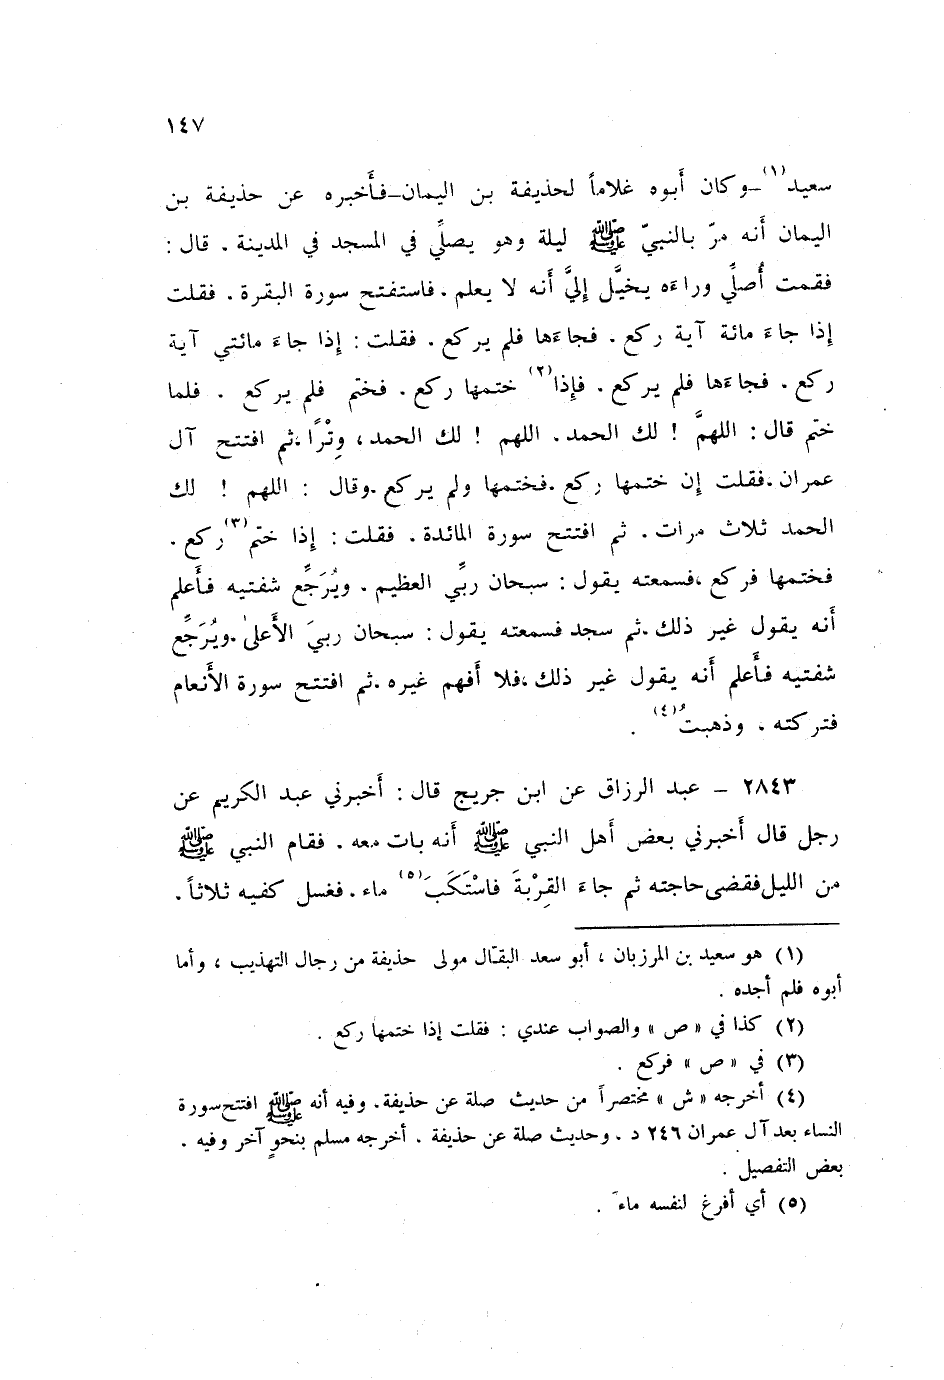 ١٤٧
سعيد(١) ـ وكان أَبوه غلاماً لحذيفة بن اليمان ـ فأَخبره عن حذيفة بن
اليمان أَنه مرّ بالنبيّ ﷺ ليلة وهو يصلِّي في المسجد في المدينة . قال :
فقمت أُصلِّي وراءَه يخيَّل إِليَّ أَنه لا يعلم . فاستفتح سورة البقرة . فقلت
إِذا جاءَ مائة آية ركع . فجاءَها فلم يركع . فقلت : إِذا جاءَ مائتي آية
ركع . فجاءَها فلم يركع . فإِذا(٢) ختمها ركع . فختم فلم يركع . فلما
ختم قال : اللهمَّ ! لك الحمد . اللهم ! لك الحمد ، وِتْرًا ، ثم افتتح آل
عمران ، فقلت إن ختمها ركع . فختمها ولم يركع . وقال : اللهم ! لك
الحمد ثلاث مرات . ثم افتتح سورة المائدة . فقلت : إِذا ختم(٣) ركع .
فختمها فركع ، فسمعته يقول : سبحان ربِّي العظيم . ويُرَجِّع شفتيه فأَعلم
أَنه يقول غير ذلك . ثم سجد فسمعته يقول : سبحان ربيَ الأَعلىٰ . ويُرَجِّع
شفتيه فأَعلم أَنه يقول غير ذلك ، فلا أَفهم غيره . ثم افتتح سورة الأَنعام
فتركته . وذهبتُ(٤) .
٢٨٤٣ ـ عبد الرزاق عن ابن جريج قال : أَخبرني عبد الكريم عن
رجل قال أَخبرني بعض أَهل النبي ﷺ أَنه بات معه . فقام النبي ﷺ
من الليل فقضى حاجته ثم جاءَ القِرْبةَ فاسْتَكَبَ(٥) ماء . فغسل كفيه ثلاثاً .
(١) هو سعيد بن المرزبان ، أبو سعد البقّال مولى حذيفة من رجال التهذيب ، وأما
أبوه فلم أجده .
(٢) كذا في « ص » والصواب عندي : فقلت إذا ختمها ركع .
(٣) في « ص » فركع .
(٤) أخرجه « ش » مختصراً من حديث صلة عن حذيفة . وفيه أنه ﷺ افتتح سورة
النساء بعد آل عمران ٢٤٦ د . وحديث صلة عن حذيفة . أخرجه مسلم بنحوٍ آخر وفيه .
بعض التفصيل .
(٥) أي أفرغ لنفسه ماءً .